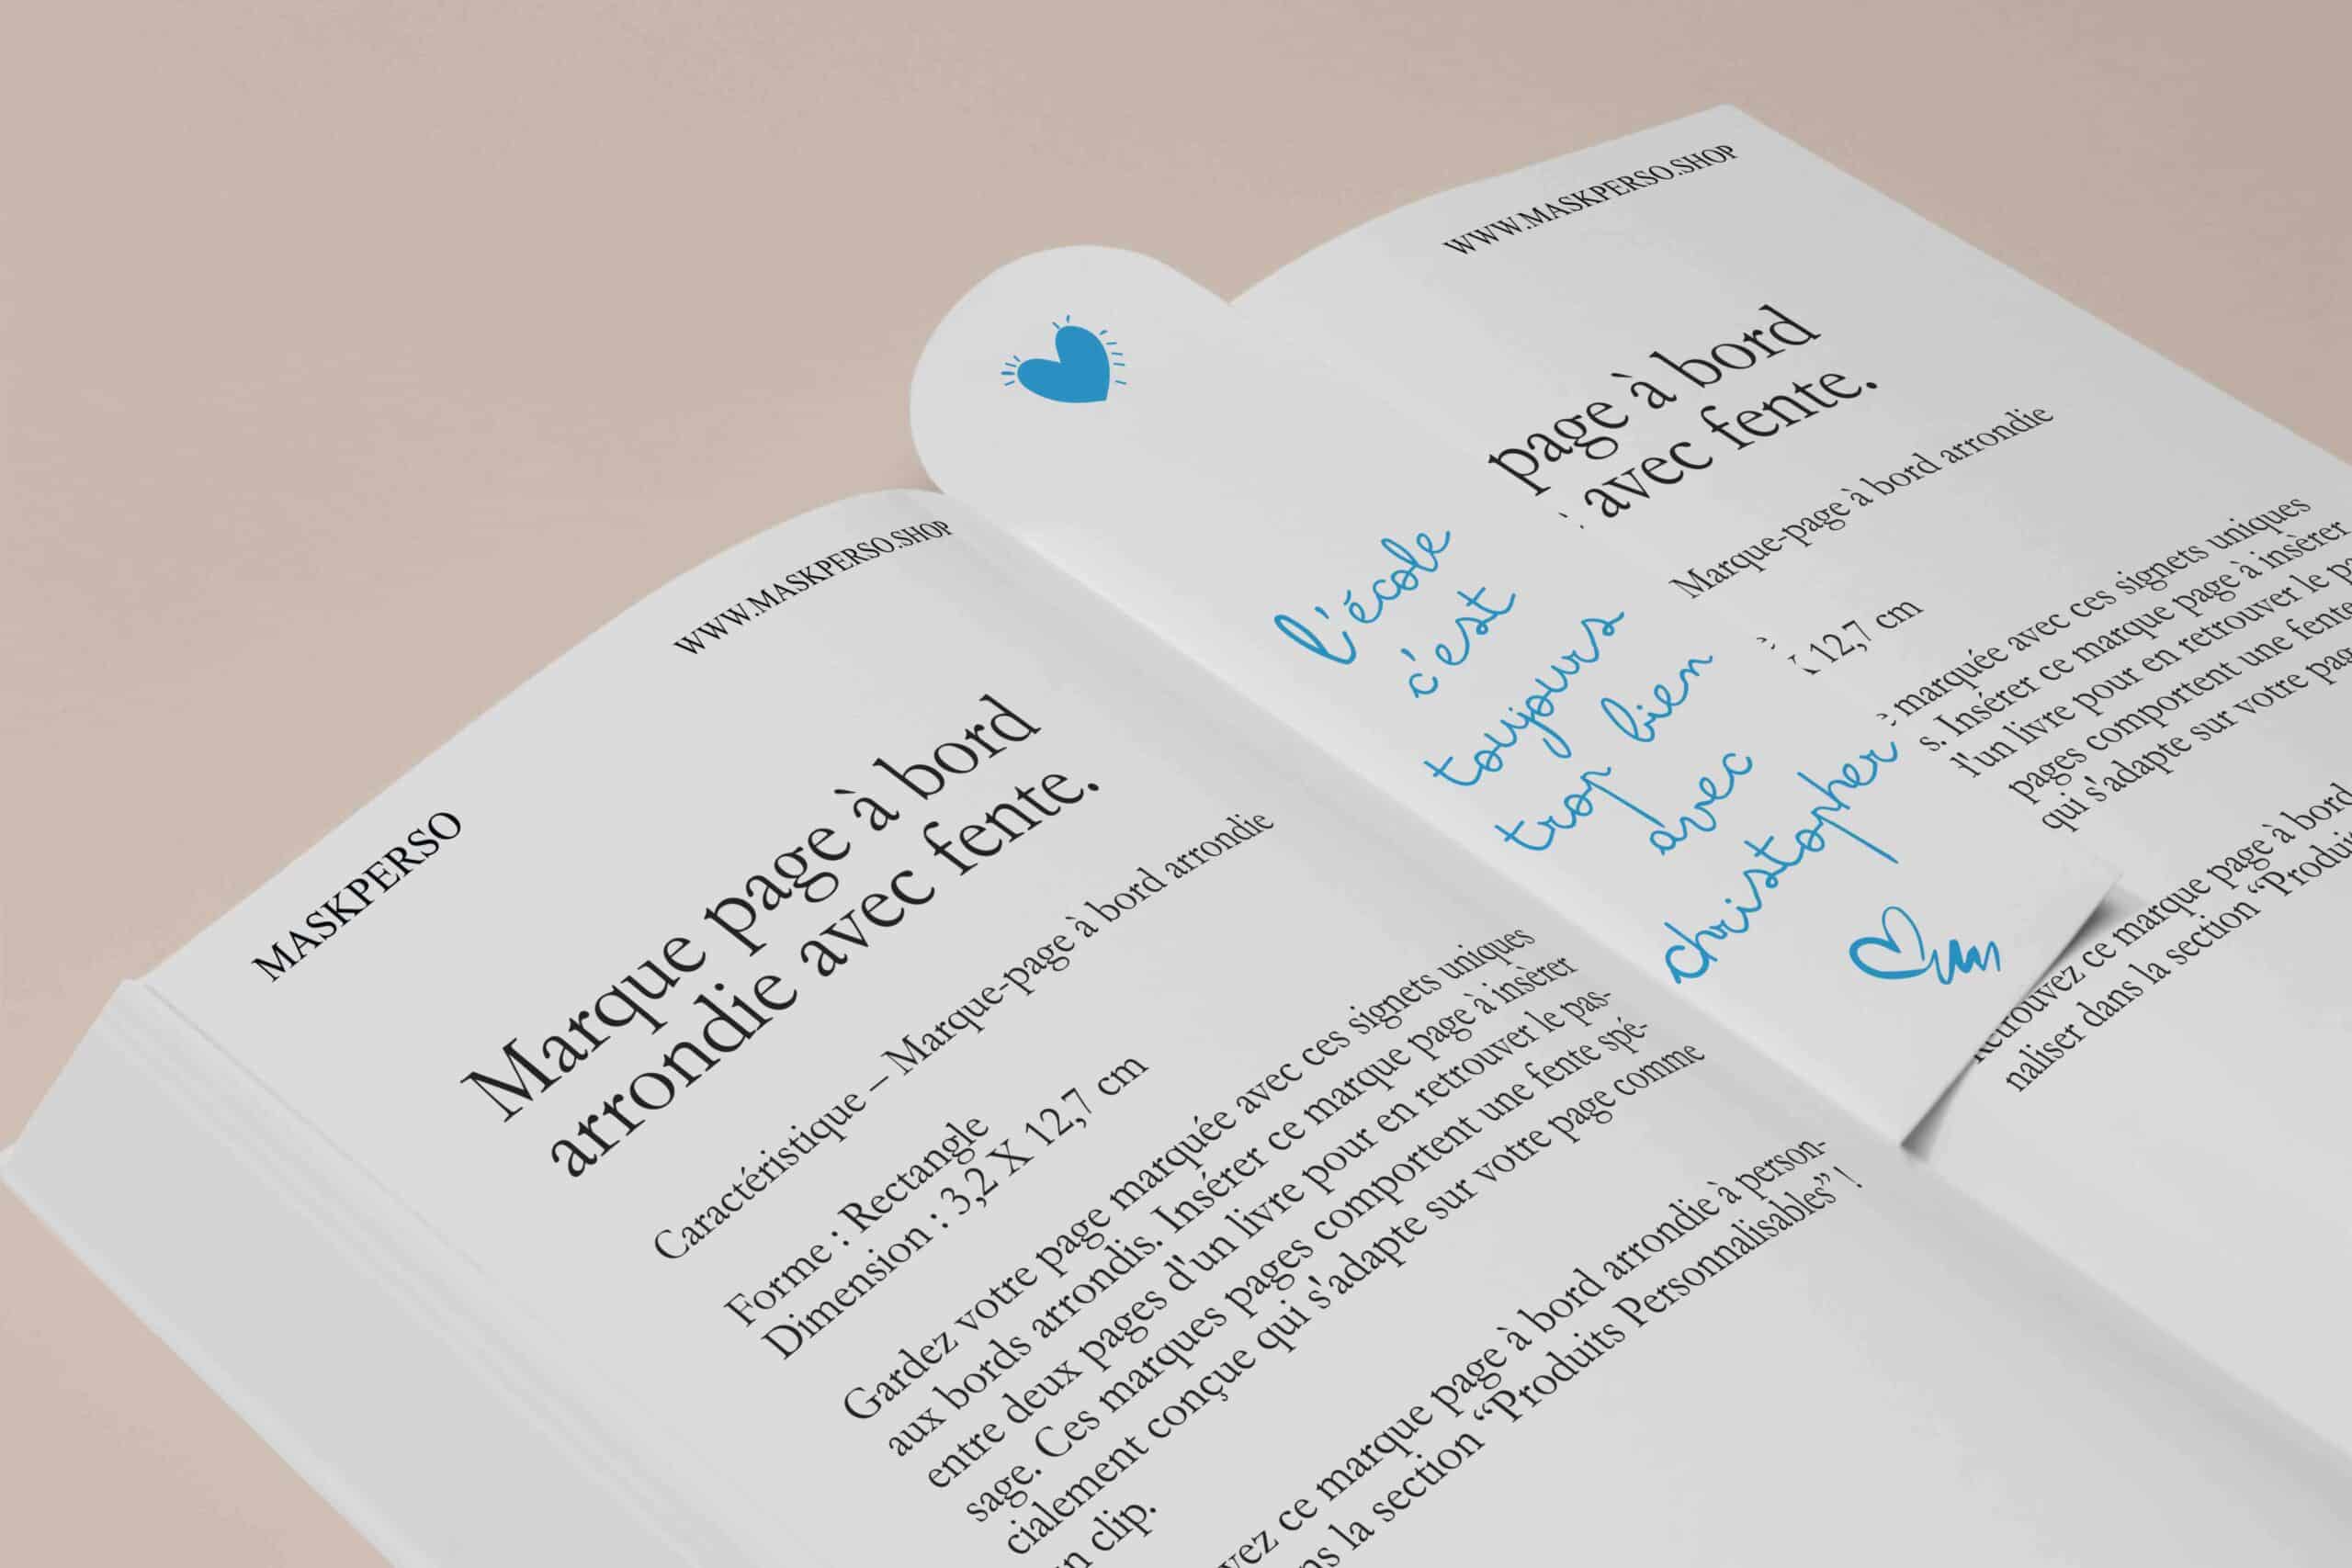 MASKPERSO
WWW.MASKPERSO.SHOP
Marque page à bord
arrondie avec fente.
Caractéristique – Marque-page à bord arrondie
Forme : Rectangle
Dimension : 3,2 X 12,7 cm
Gardez votre page marquée avec ces signets uniques
aux bords arrondis. Insérer ce marque page à insèrer
entre deux pages d'un livre pour en retrouver le pas-
sage. Ces marques pages comportent une fente spé-
cialement conçue qui s'adapte sur votre page comme
clip.
ce marque page à bord arrondie à person-
la section “Produits Personnalisables” !
l'école
c'est
toujours
trop bien
avec
christopher
WWW.MASKPERSO.SHOP
page à bord
avec fente.
Marque-page à bord arrondie
12,7 cm
marquée avec ces signets uniques
s. Insérer ce marque page à insèrer
d'un livre pour en retrouver le
pages comportent une fente
qui s'adapte sur votre
Retrouvez ce marque page à bord
naliser dans la section